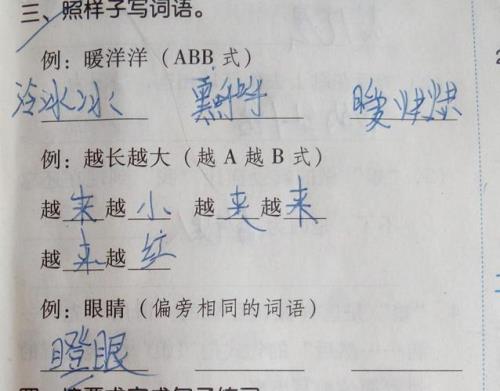 三、照样子写词语。
例：暖洋洋（ABB 式）
冷冰冰 暖烘烘
例：越长越大（越 A 越 B 式）
越来越小 越来越来
越来越红
例：眼睛（偏旁相同的词语）
瞪眼